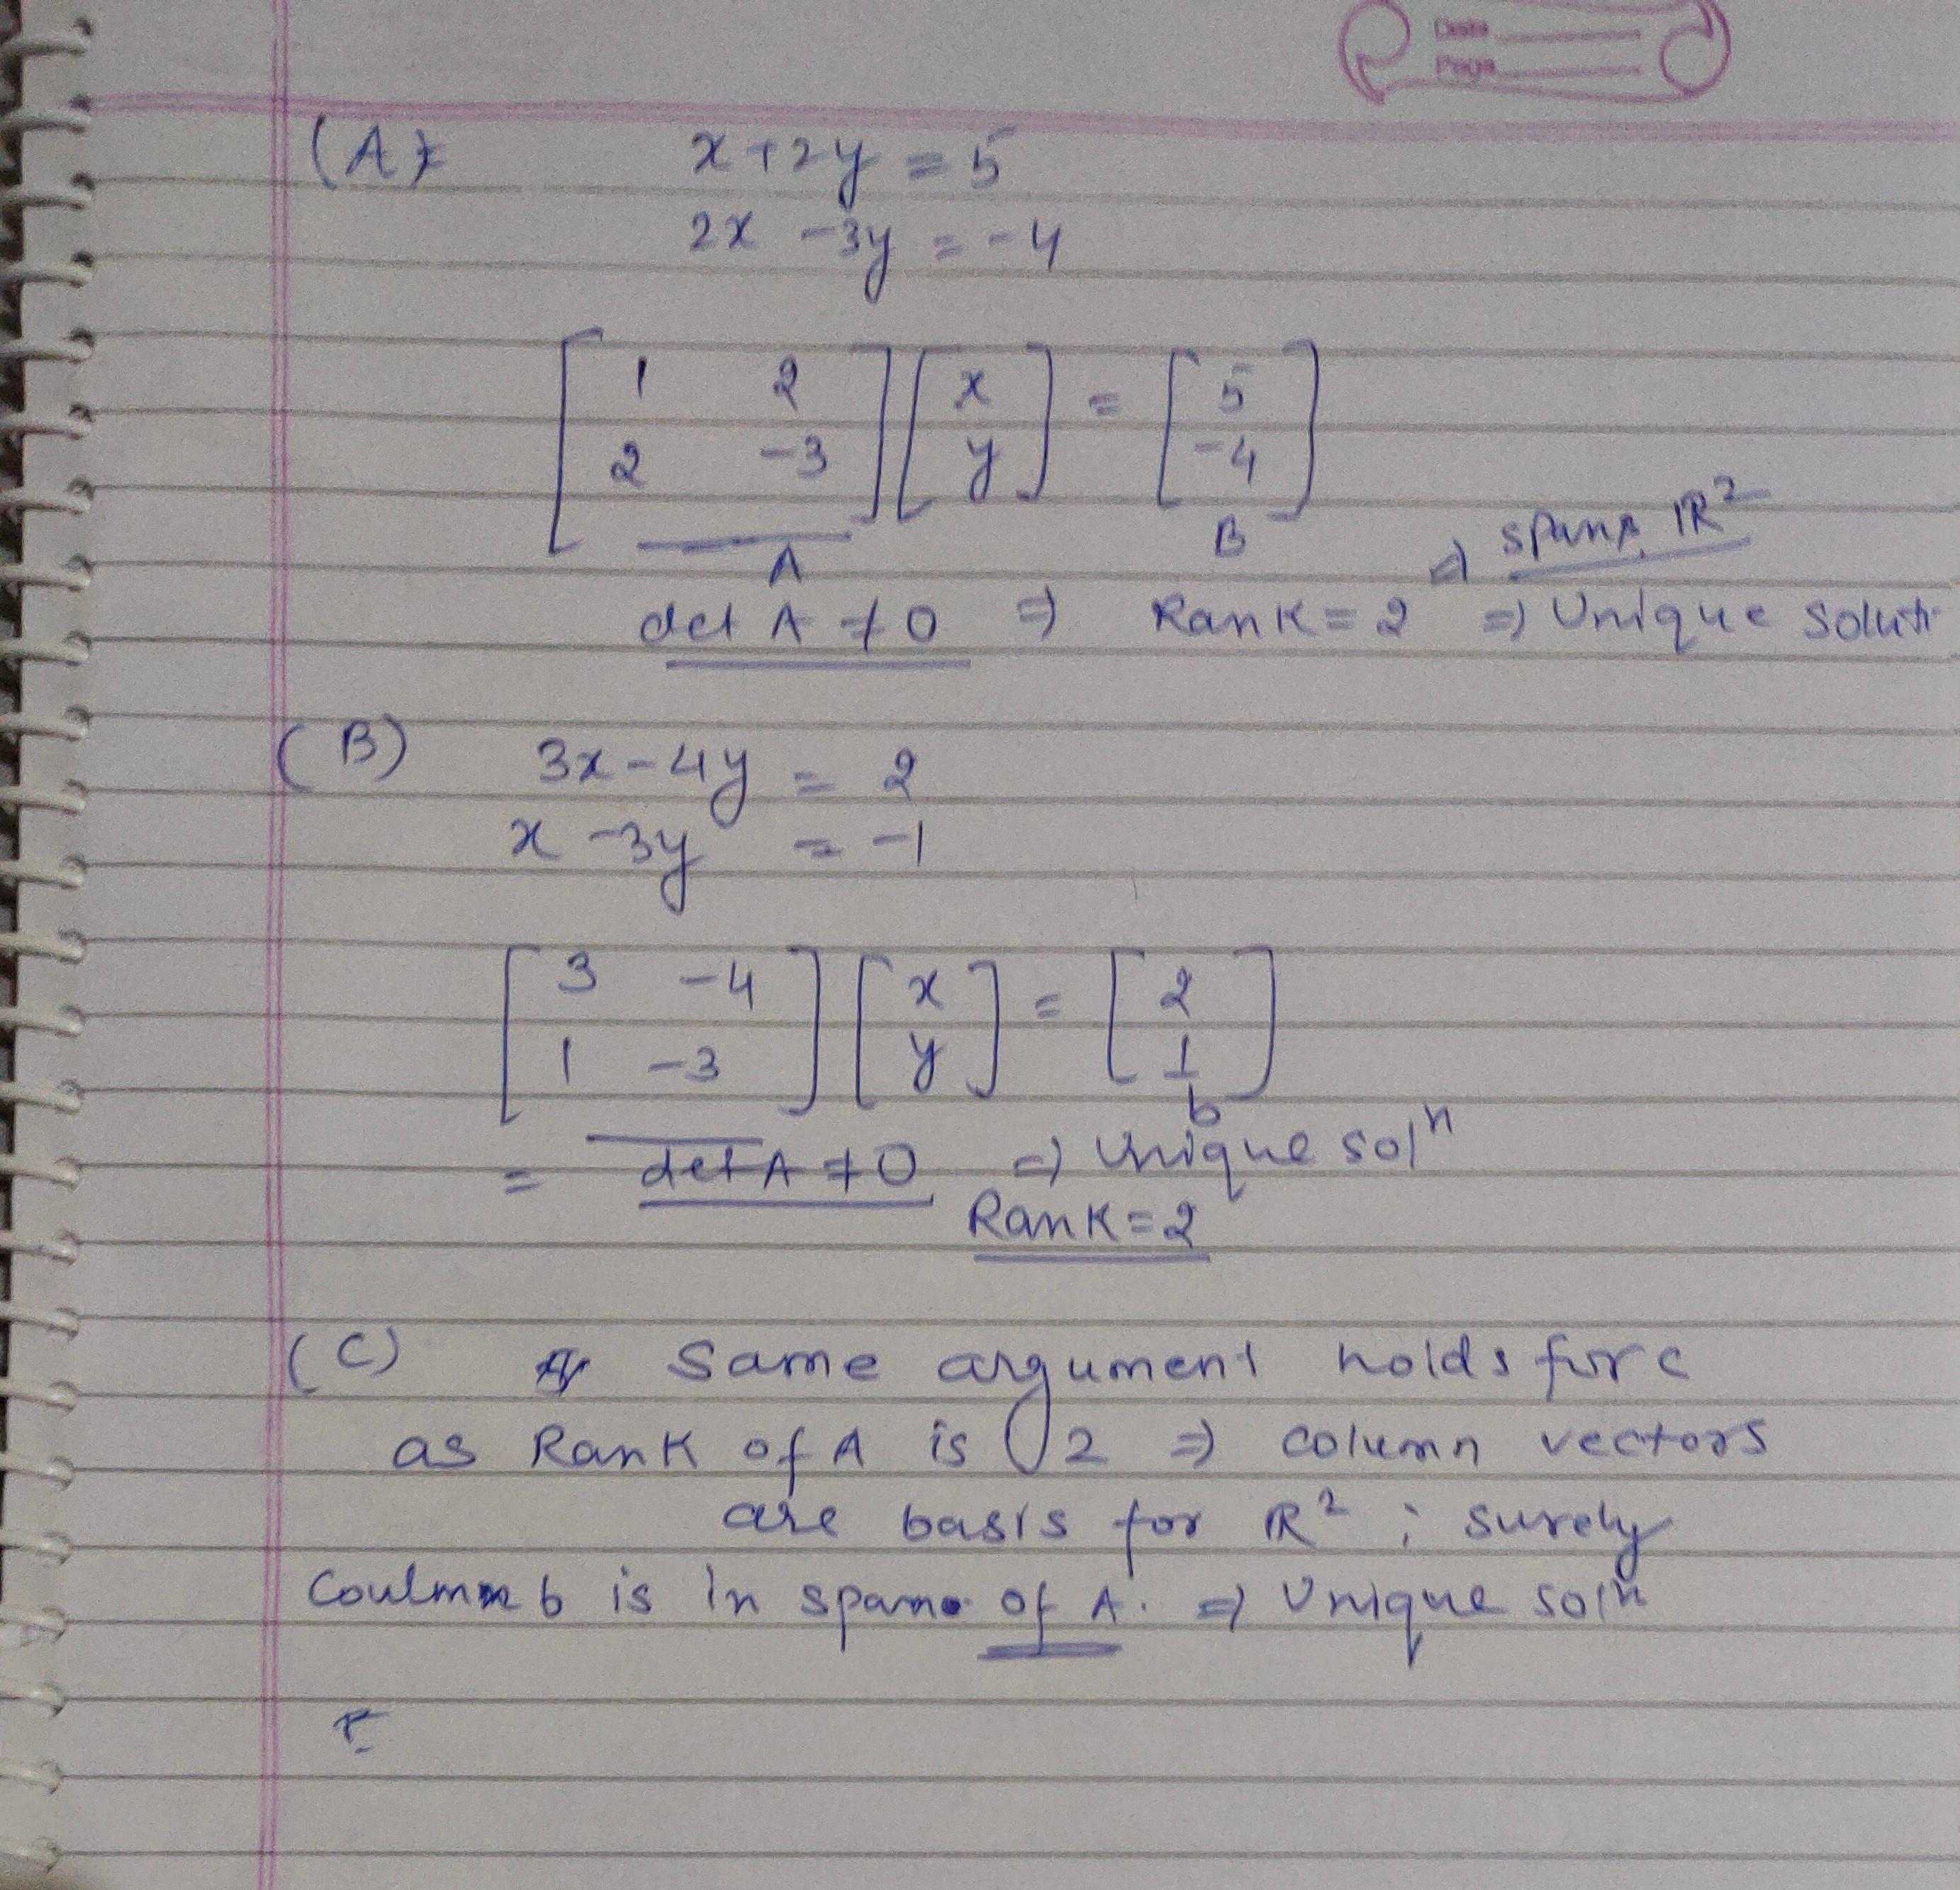 Date
Page
(A) x+2y = 5
2x -3y = -4
[1 2
2 -3] [x
y] = [5
-4]
A B ⇒ spans IR²
det A ≠ 0 ⇒ Rank = 2 ⇒ Unique soluti
(B) 3x-4y = 2
x -3y = -1
[3 -4
1 -3] [x
y] = [2
1]
b
= det A ≠ 0 ⇒ Unique solⁿ
Rank=2
(C) Same argument holds for c
as Rank of A is 2 ⇒ column vectors
are basis for IR² ; surely
Coulmn b is in span of A. ⇒ Unique solⁿ